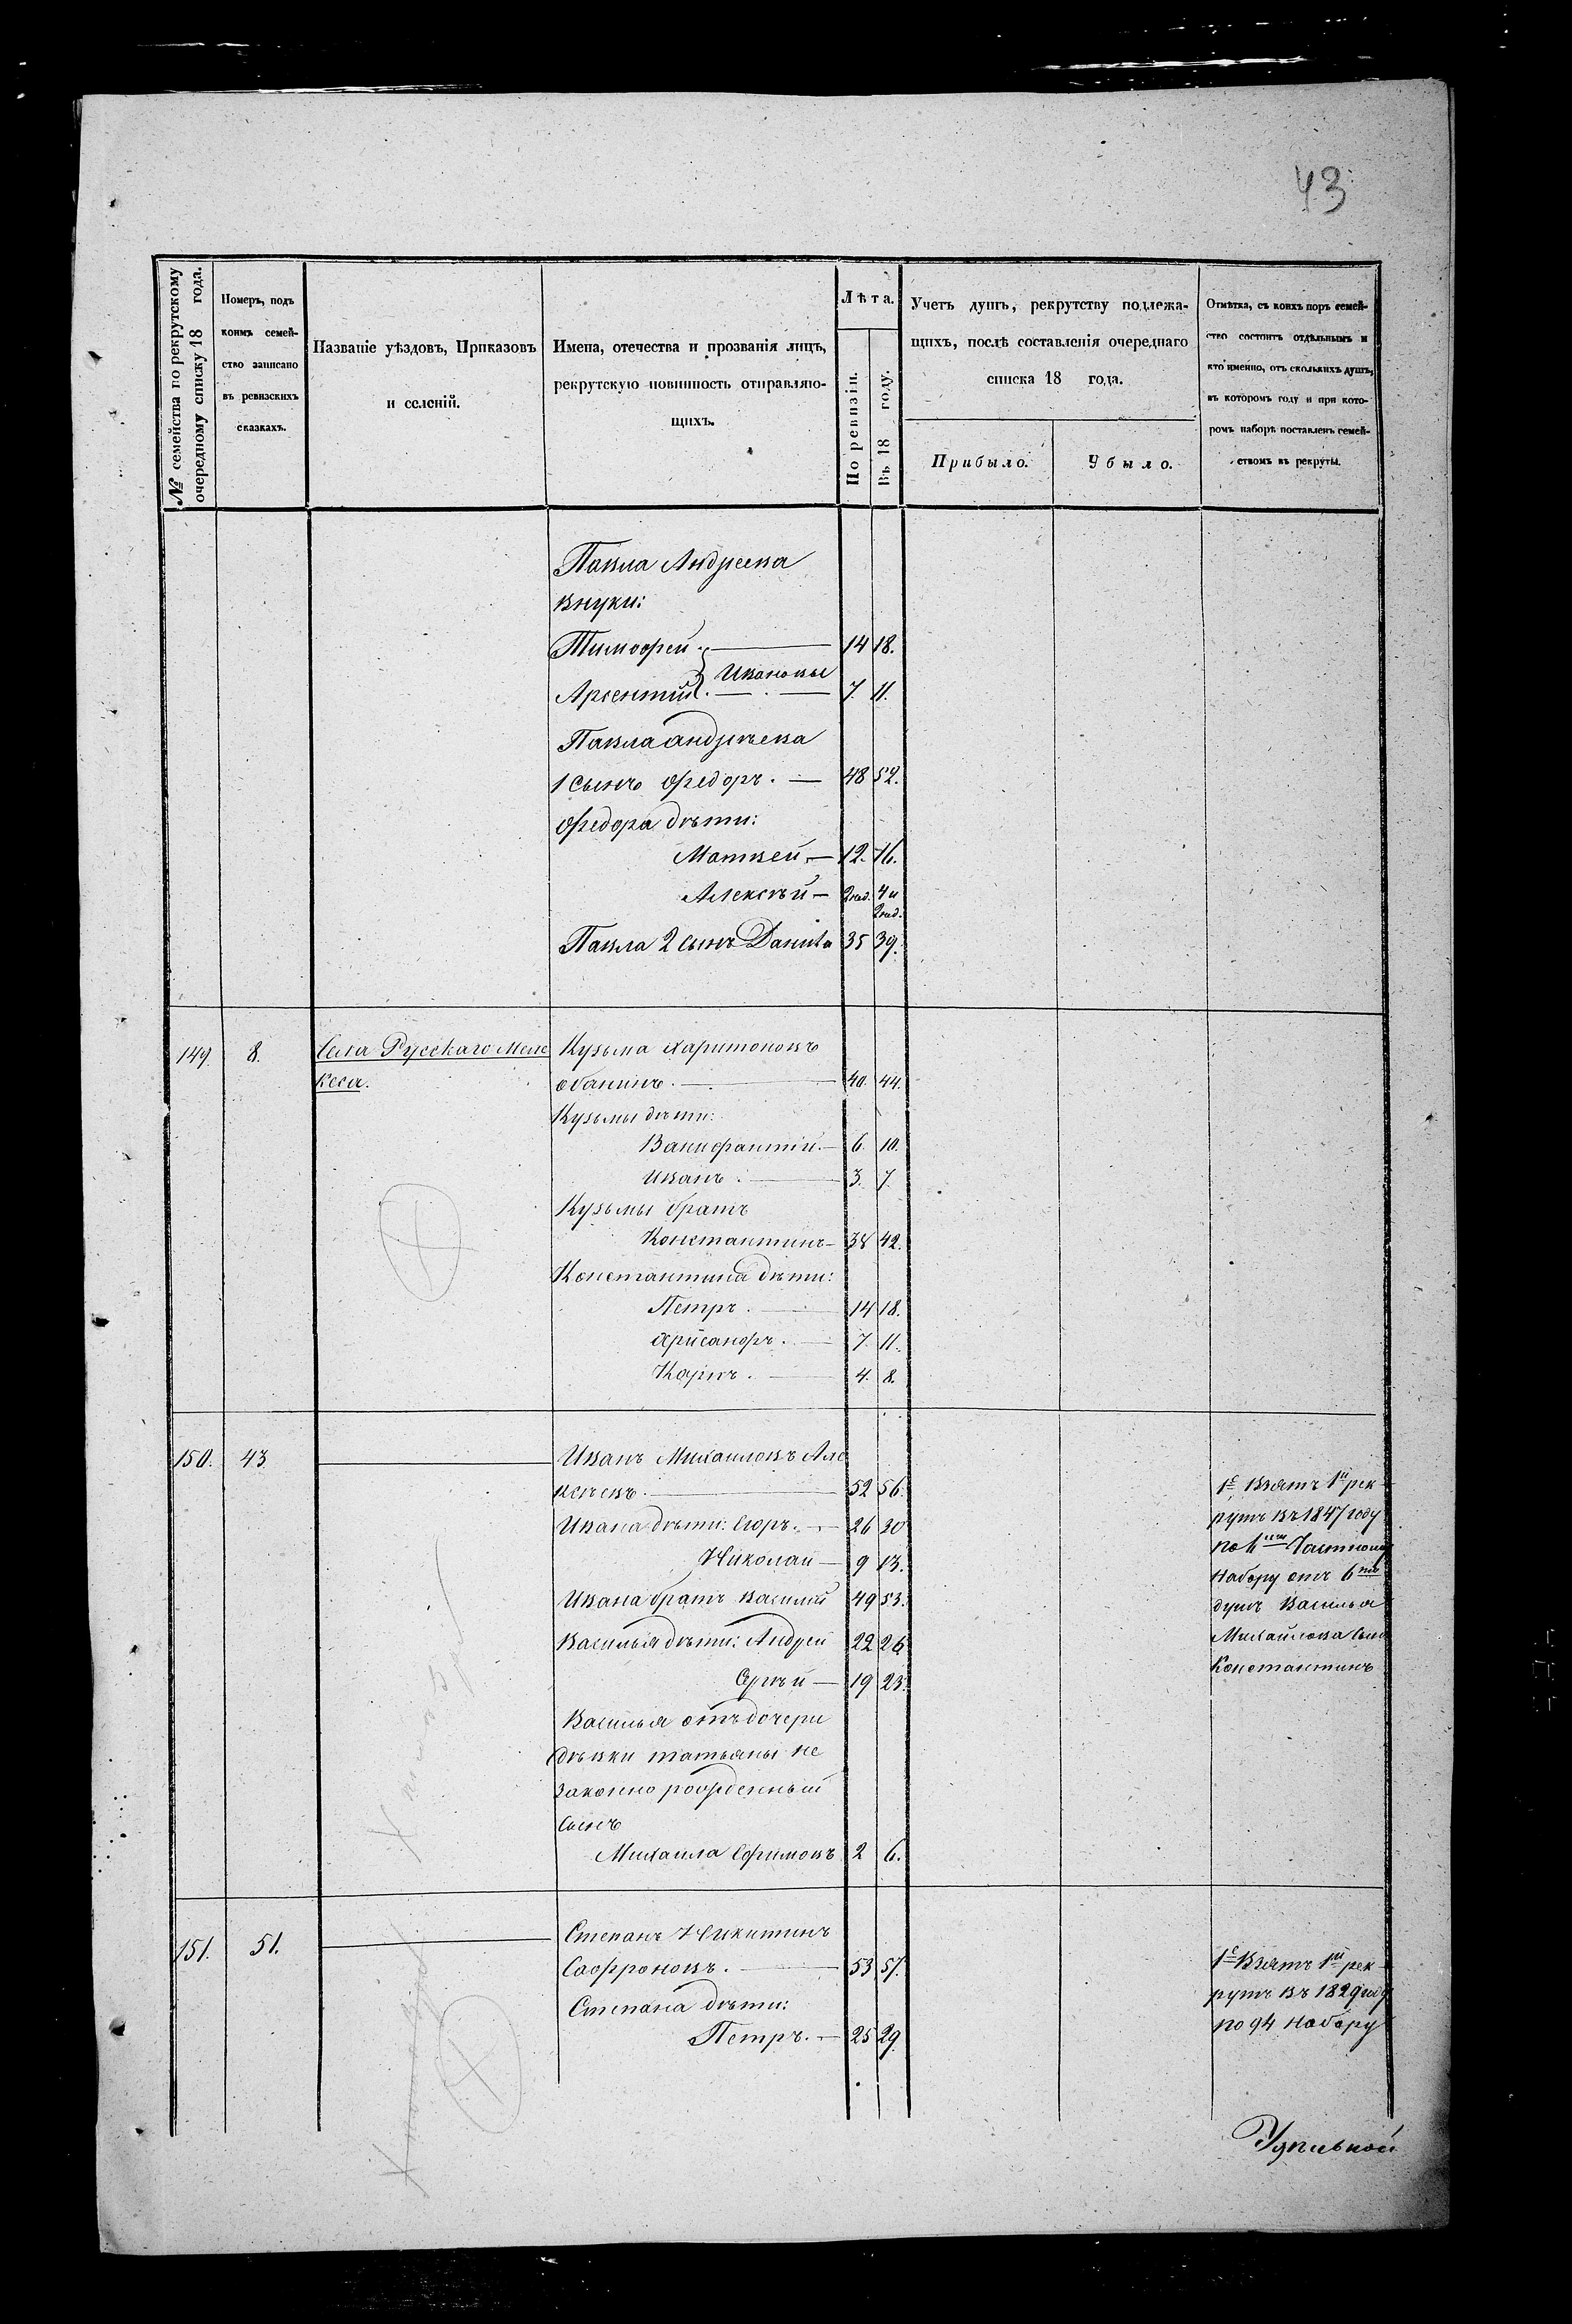 43
№ семейства по рекрутскому очередному списку 18 года.
Номеръ, подъ коимъ семейство записано въ ревизскихъ сказкахъ.
Названіе уѣздовъ, Приказовъ
и селеній.
Имена, отечества и прозванія лицъ,
рекрутскую повинность отправляю-
щихъ.
Лѣта.
По ревизіи.
Въ 18 году.
Учетъ душъ, рекрутству подлежа-
щихъ, послѣ составленія очереднаго
списка 18 года.
Прибыло.
Убыло.
Отмѣтка, съ коихъ поръ семей-
ство состоитъ отдѣльнымъ и
кто именно, отъ сколькихъ душъ,
въ которомъ году и при кото-
ромъ наборѣ поставленъ семей-
ствомъ въ рекруты.
Павла Андреева
внуки:
Тимофей. 14 18.
Ивановы
Арсентій. 7. 11.
Павла андрѣева
1 сынъ Федоръ. 48 52.
Федора дѣти:
Матвей 12. 16.
Алексѣй 2 нед. 4 и
2 нед.
Павла 2 сынъ Данила 35 39.
149. 8. Села Русскаго Меле Кузьма Харитоновъ
кеса. 40. 44.
Кузьмы дѣти:
Ванифантій. 6. 10.
Иванъ. 3. 7.
Кузьмы братъ
Константинъ 38 42.
Константина дѣти:
Петръ. 14 18.
Хрисанфъ. 7. 11.
Карпъ. 4. 8.
150. 43 Иванъ Михаиловъ Але
ксѣевъ. 52 56.
Ивана дѣти: Егоръ. 26 30
Николай 9 13.
Ивана братъ Василій 49 53.
Василья дѣти: Андрей 22 26
Сергѣй 19 23.
Василья отъ дочери
дѣвки татьяны не
законно рожденный
сынъ
Михаила Ефимовъ 2 6.
1е Взятъ 1й рек
рутъ въ 1847 году
по Частному
набору отъ 6ти
душъ Василья
Михайлова сынъ
Константинъ
151. 51. Степанъ Никитинъ
Софроновъ. 53 57.
Степана дѣти:
Петръ. 25 29.
1е Взятъ 1й рек
рутъ въ 1829 году
по 94 набору
Удѣльной